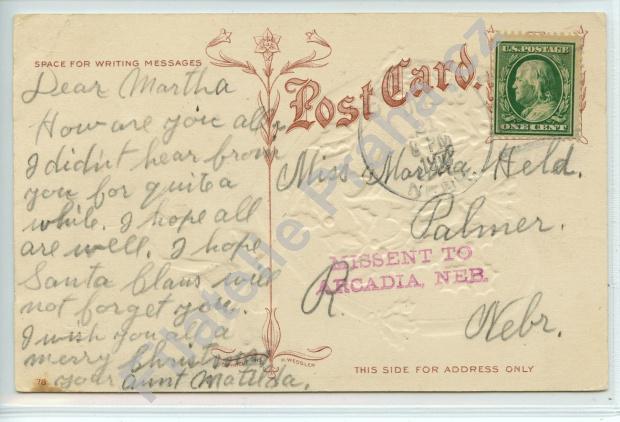 SPACE FOR WRITING MESSAGES
Post Card.
U.S. POSTAGE
ONE CENT
Dear Martha
How are you all
I didn't hear from
you for quite a
while. I hope all
are well. I hope
Santa Claus will
not forget you.
I wish you all a
merry Christmas
your Aunt Matilda.
Miss Martha Held.
Palmer.
R.
Nebr.
MISSENT TO
ARCADIA, NEB.
78
WESSLER
THIS SIDE FOR ADDRESS ONLY
Filatelie Praha.cz